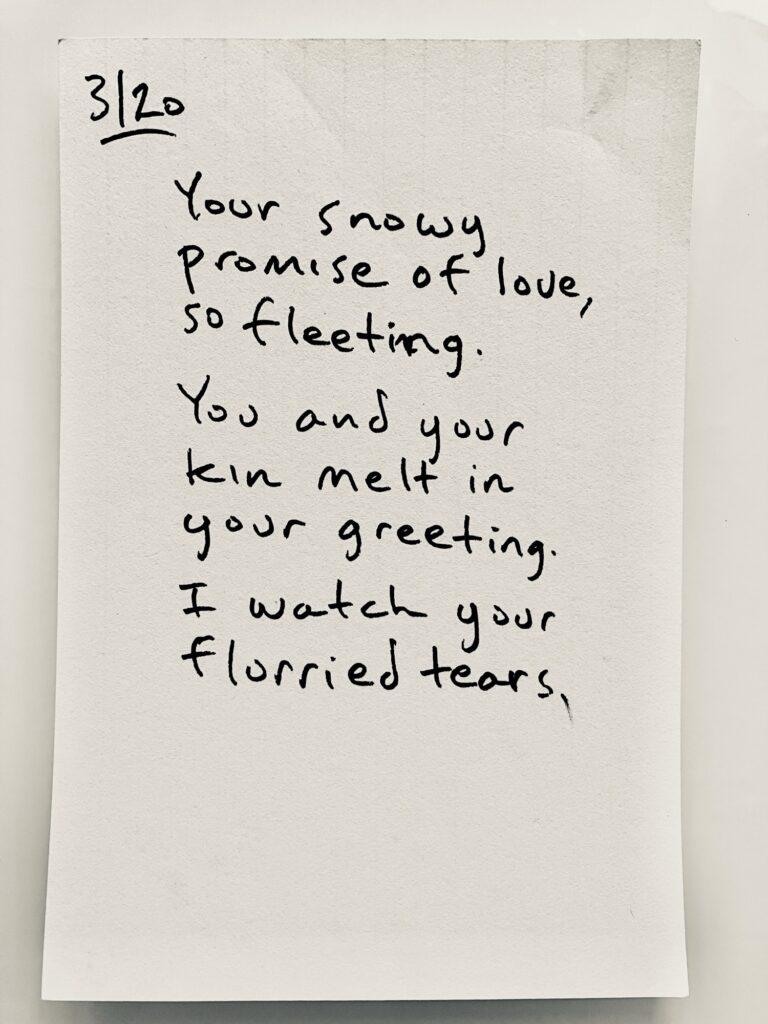 3/20
Your snowy
promise of love,
so fleeting.
You and your
kin melt in
your greeting.
I watch your
flurried tears,